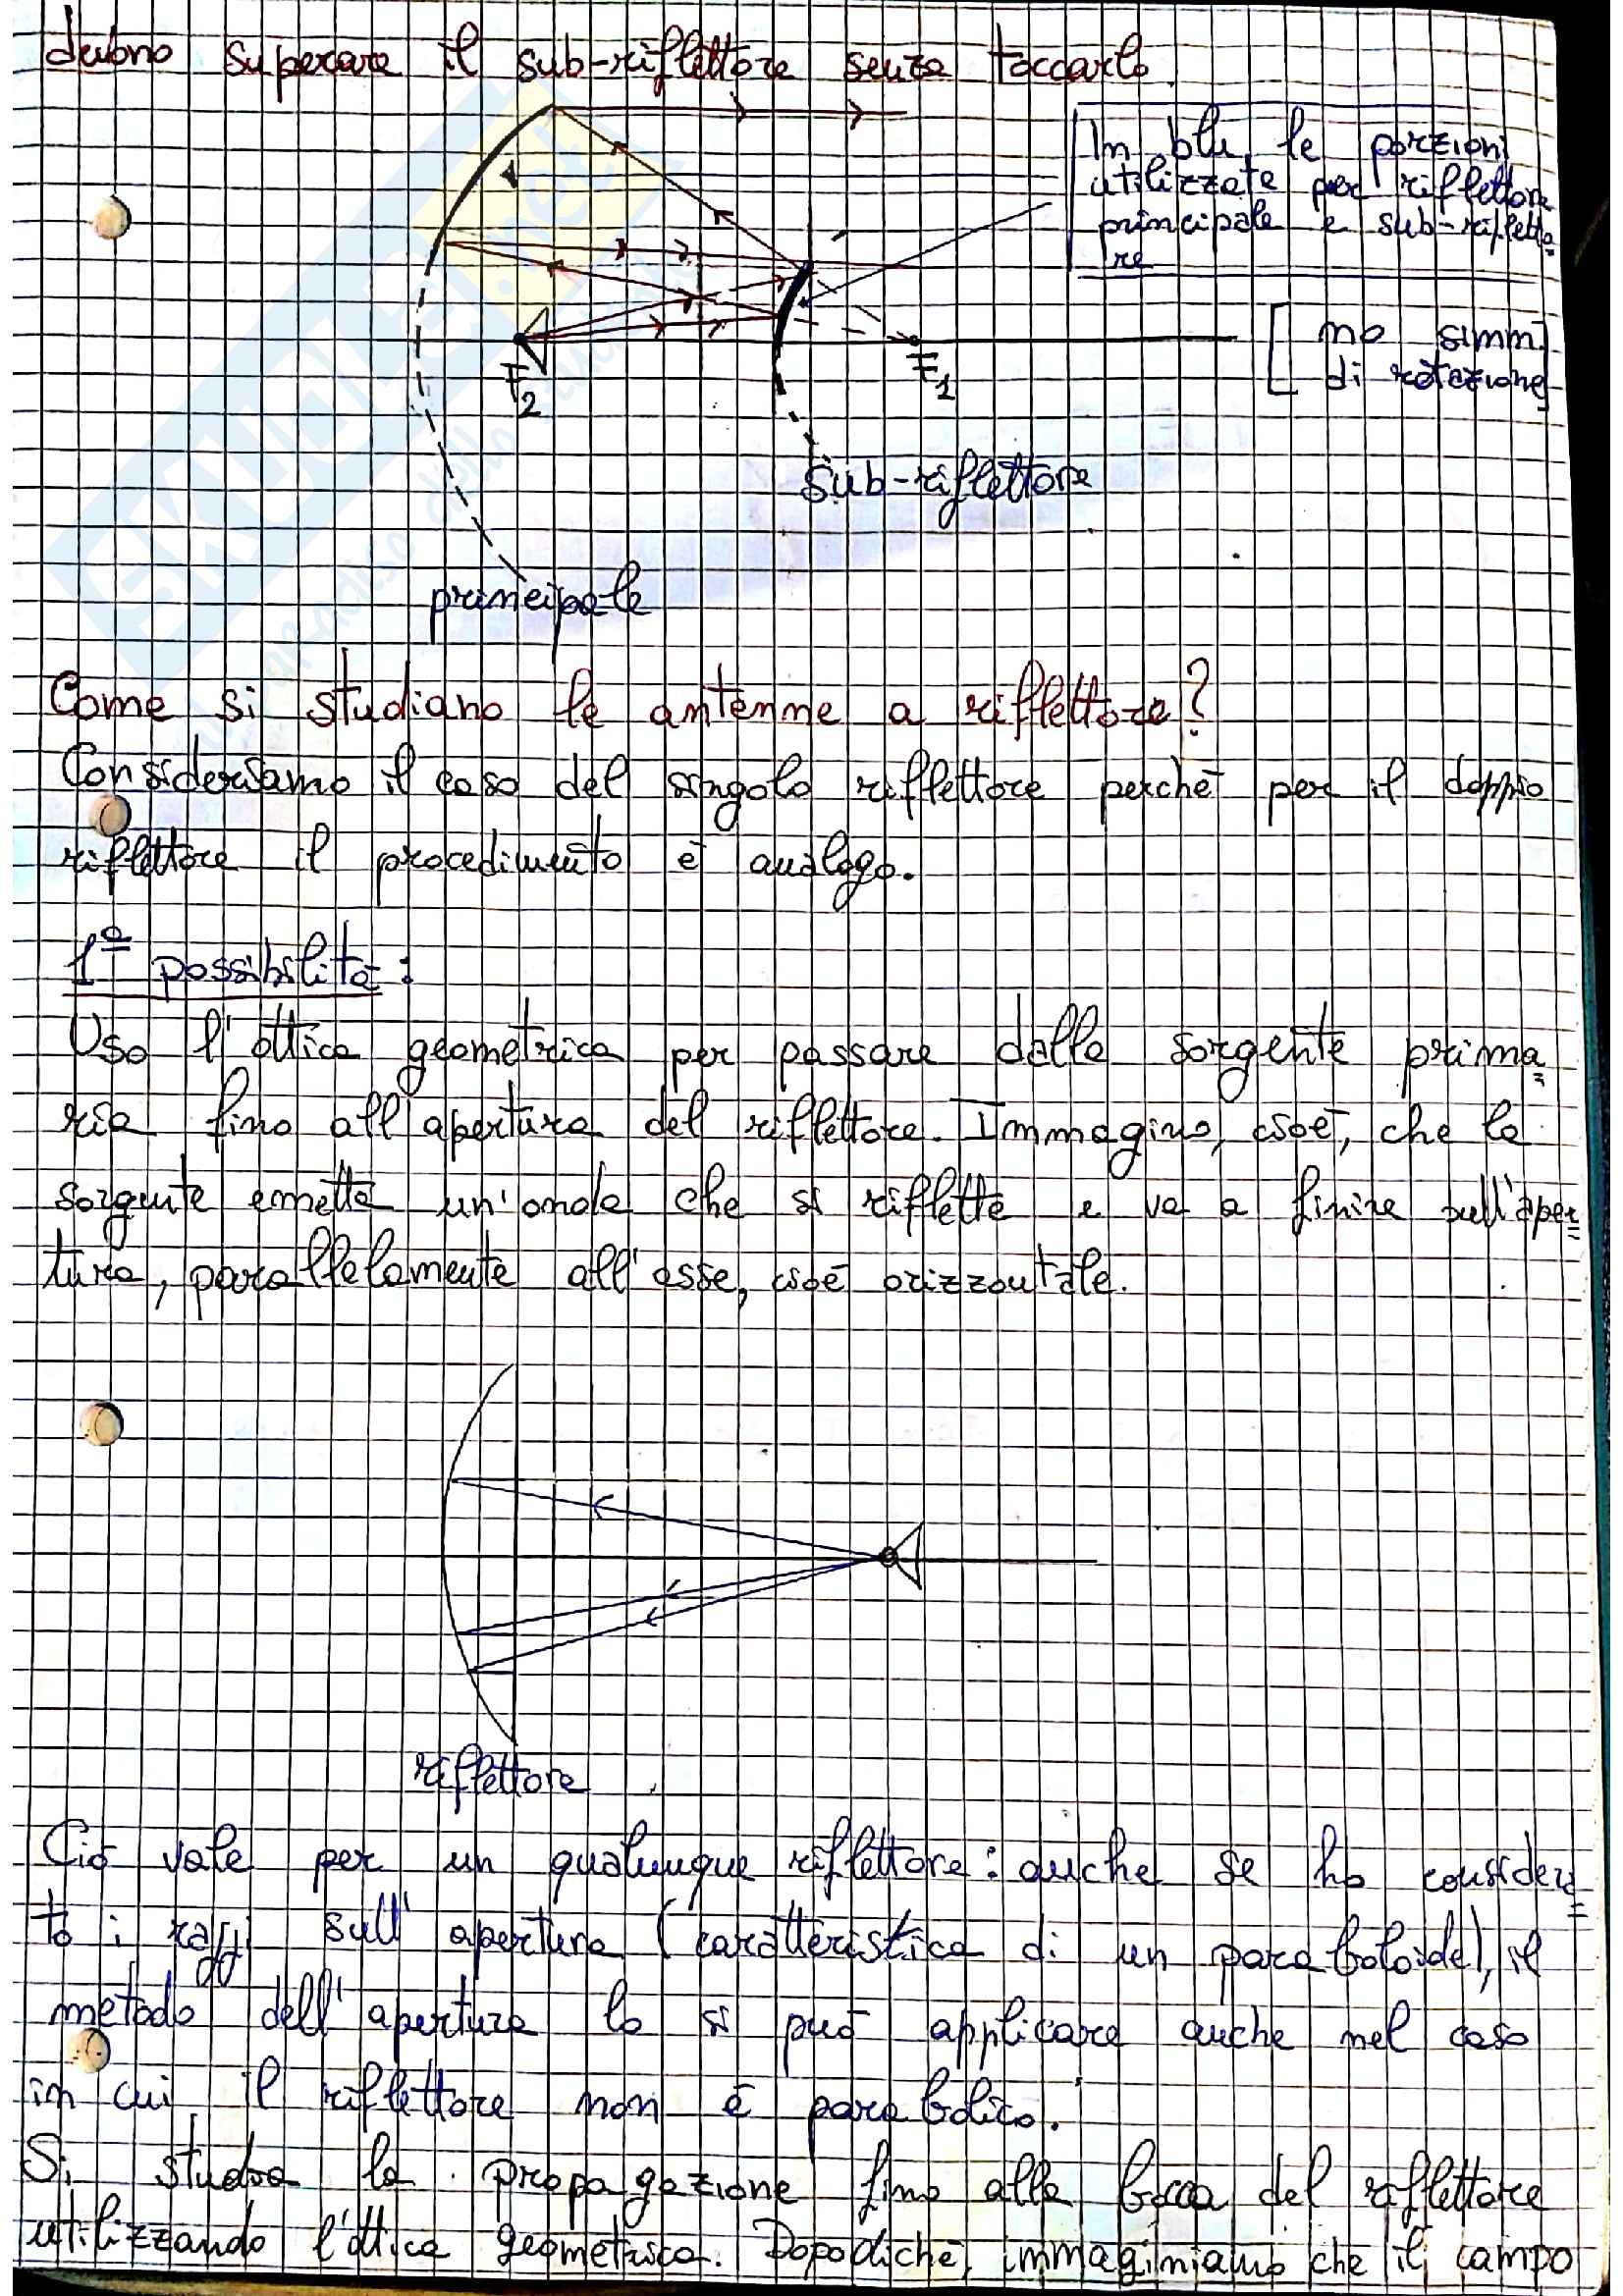 debono superare il sub-riflettore senza toccarlo.
In blu le porzioni
utilizzate per riflettore
principale e sub-rifletto=
re
F2
F1
[no simm.
di rotazione]
sub-riflettore
principale
Come si studiano le antenne a riflettore?
Consideriamo il caso del singolo riflettore perchè per il doppio
riflettore il procedimento è analogo.
1ª possibilità:
Uso l'ottica geometrica per passare dalla sorgente prima=
ria fino all'apertura del riflettore. Immagino, cioè, che la
sorgente emetta un'onda che si riflette e va a finire sull'aper=
tura, parallelamente all'asse, cioè orizzontale.
riflettore
Ciò vale per un qualunque riflettore: anche se ho considera=
to i raggi sull'apertura (caratteristica di un paraboloide), il
metodo dell'apertura lo si può applicare anche nel caso
in cui il riflettore non è parabolico.
Si studia la propagazione fino alla bocca del riflettore
utilizzando l'ottica geometrica. Dopodichè, immaginiamo che il campo
SKUOLA.net